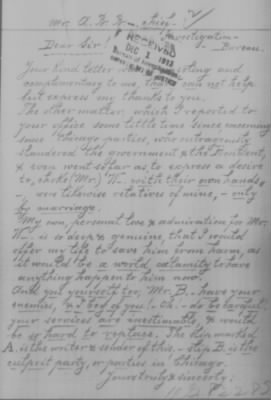 Mr. A. B. B. - Chief -
Investigation -
Dear Sir! Bureau.
RECEIVED
DEC 1917
Your kind letter was so interesting and
complimentary to me, that I can not help
but express my thanks to you.
The other matter, which I reported to
your office some little time since concerning
some Chicago parties, who outrageously
slandered the government & the President,
& even went so far as to express a desire
to choke (Mr.) W- with their own hands,
- were likewise relatives of mine, - only
by marriage.
My own, personal love & admiration for Mr.
W- is so deep & genuine, that I would
offer my life to save him from harm, as
it would be a world calamity to have
anything happen to him now.
And yet you yourself too, Mr. B. - have your
enemies, & I beg of you! Oh - do be careful,
your services are inestimable, & would
be so hard to replace. The slip marked
A. is the writer & sender of this. - slip B. is the
culprit party, or parties in Chicago.
Yours truly & sincerely;